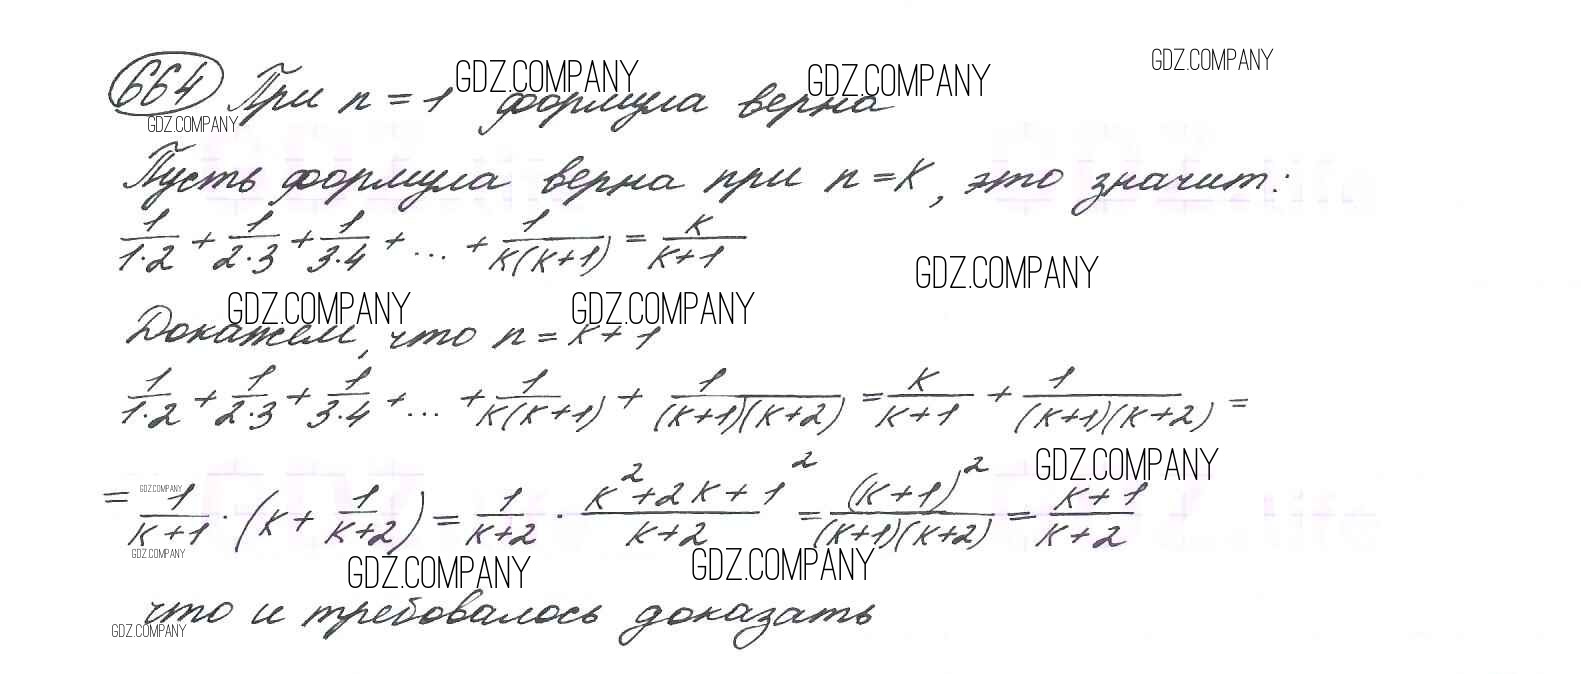 GDZ.COMPANY
664 При n = 1 формула верна
GDZ.COMPANY GDZ.COMPANY
GDZ.COMPANY
Пусть формула верна при n = K, это значит:
1/(1·2) + 1/(2·3) + 1/(3·4) + ... + 1/(K(K+1)) = K/(K+1)
GDZ.COMPANY
GDZ.COMPANY GDZ.COMPANY
Докажем, что n = K + 1
1/(1·2) + 1/(2·3) + 1/(3·4) + ... + 1/(K(K+1)) + 1/((K+1)(K+2)) = K/(K+1) + 1/((K+1)(K+2)) =
GDZ.COMPANY
GDZ.COMPANY
= 1/(K+1) · (K + 1/(K+2)) = 1/(K+2) · (K²+2K+1)/(K+2) ² = (K+1)²/((K+1)(K+2)) = (K+1)/(K+2)
GDZ.COMPANY
GDZ.COMPANY GDZ.COMPANY
что и требовалось доказать
GDZ.COMPANY